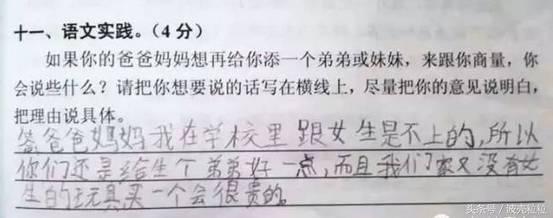 十一、语文实践。（4分）
如果你的爸爸妈妈想再给你添一个弟弟或妹妹，来跟你商量，你
会说些什么？请把你想要说的话写在横线上，尽量把你的意见说明白，
把理由说具体。
答爸爸妈妈我在学校里跟女生是不上的，所以
你们还是给生个弟弟好一点，而且我们家又没有女
生的玩具买一个会很贵的。
头条号/波壳粒粒